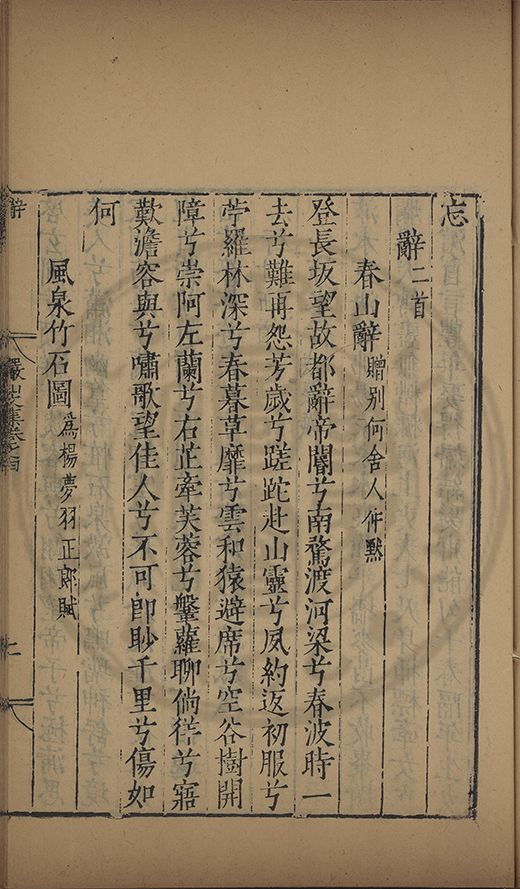 忘
辭二首
春山辭贈別何舍人仲默
登長坂望故都辭帝閽兮南騖渡河梁兮春波時一
去兮難再怨芳歲兮蹉跎赴山靈兮夙約返初服兮
薜羅林深兮春暮草靡兮雲和猿避席兮空谷樹開
障兮崇阿左蘭兮右芷牽芙蓉兮鞶蘿聊倘徉兮寤
歎澹容與兮嘯歌望佳人兮不可即眇千里兮傷如
何
風泉竹石圖為楊夢羽正郎賦